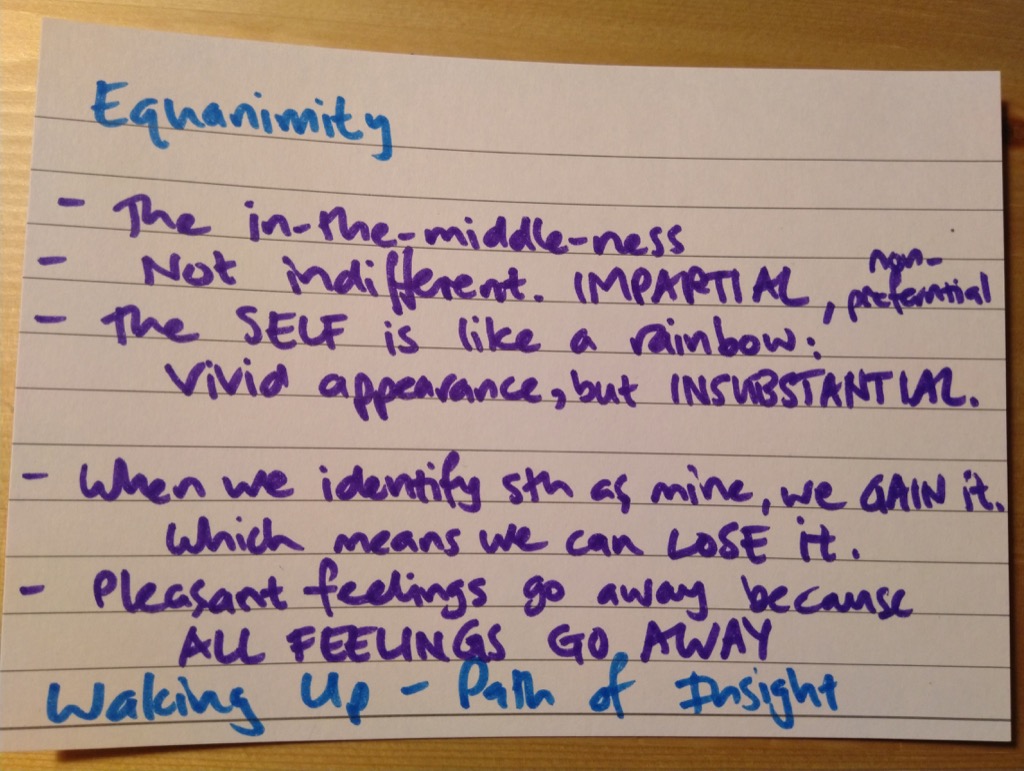 Equanimity
- The in-the-middle-ness
- Not indifferent. IMPARTIAL, non-preferential
- The SELF is like a rainbow:
Vivid appearance, but INSUBSTANTIAL.
- When we identify sth as mine, we GAIN it.
Which means we can LOSE it.
- Pleasant feelings go away because
ALL FEELINGS GO AWAY
Waking Up - Path of Insight